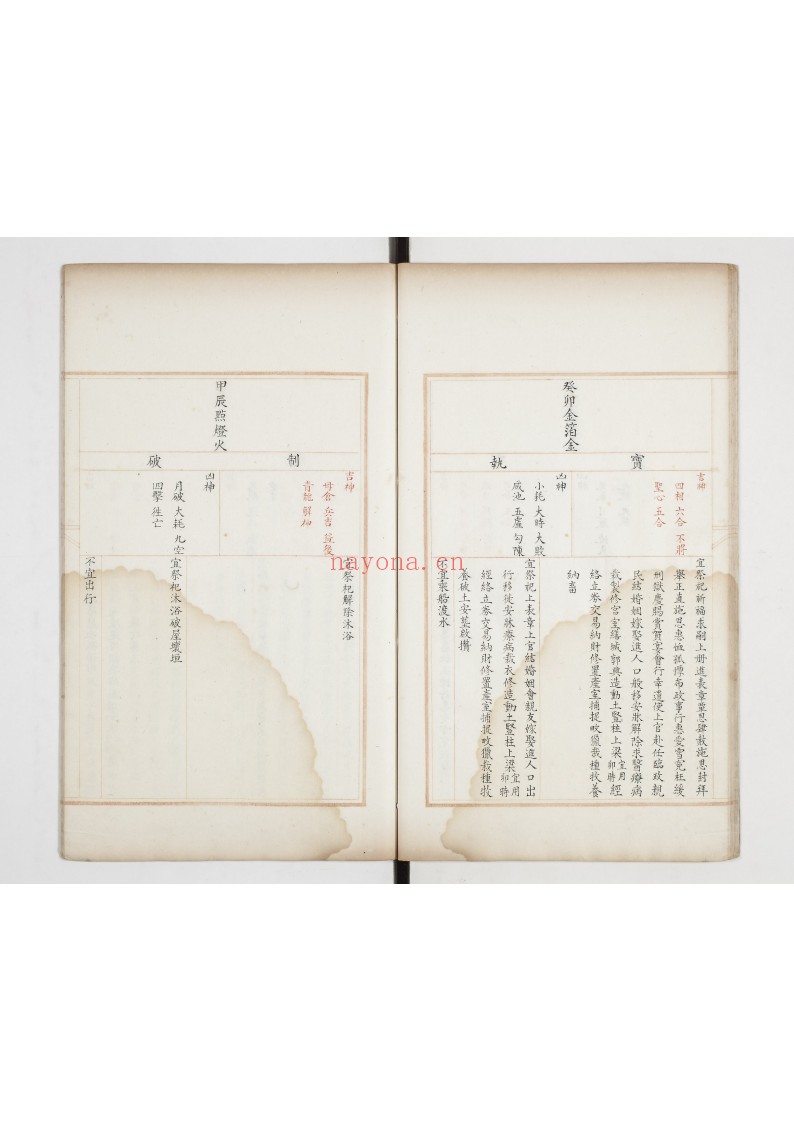 癸卯金箔金
寶
執
吉神
四相 六合 不將
聖心 五合
凶神
小耗 大時 大敗
咸池 五虛 勾陳
宜祭祀祈福求嗣上册進表章覃恩肆赦施恩封拜
舉正直施恩惠恤孤惸布政事行惠愛雪寃枉緩
刑獄慶賜賞賀宴會行幸遣使上官赴任臨政親
民結婚姻嫁娶進人口般移安牀解除求醫療病
裁製修宮室繕城郭興造動土豎柱上梁宜用卯時經
絡立券交易納財修置產室捕捉畋獵栽種牧養
納畜
宜祭祀上表章上官結婚姻會親友嫁娶進人口出
行移徙安牀療病裁衣修造動土豎柱上梁宜用卯時
經絡立券交易納財修置產室捕捉畋獵栽種牧
養破土安葬啟攢
不宜乘船渡水
甲辰照燈火
制
破
吉神
母倉 兵吉 益後
青龍 解神
凶神
月破 大耗 九空
四擊 往亡
宜祭祀解除沐浴
宜祭祀沐浴破屋壞垣
不宜出行
nayona.cn